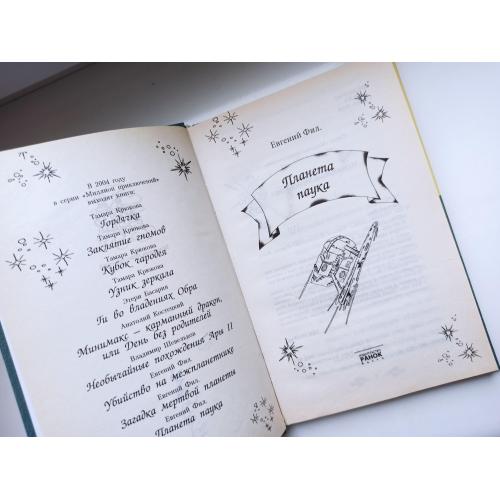 В 2004 году
в серии «Миллион приключений»
выходят книги:
Тамара Крюкова
Гордячка
Тамара Крюкова
Заклятие гномов
Тамара Крюкова
Кубок чародея
Тамара Крюкова
Узник зеркала
Этери Басария
Ги во владениях Обра
Анатолий Костецкий
Минимакс – карманный дракон,
или День без родителей
Владимир
Необычайные похождения Ары II
Евгений Фил.
Убийство на межпланетнике
Евгений Фил.
Загадка мертвой планеты
Евгений Фил.
Планета паука
Евгений Фил.
Планета
паука
РАНОК